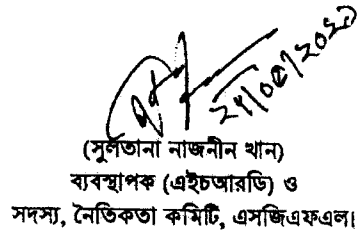 (সুলতানা নাজনীন খান)
ব্যবস্থাপক (এইচআরডি) ও
সদস্য, নৈতিকতা কমিটি, এসজিএফএল।